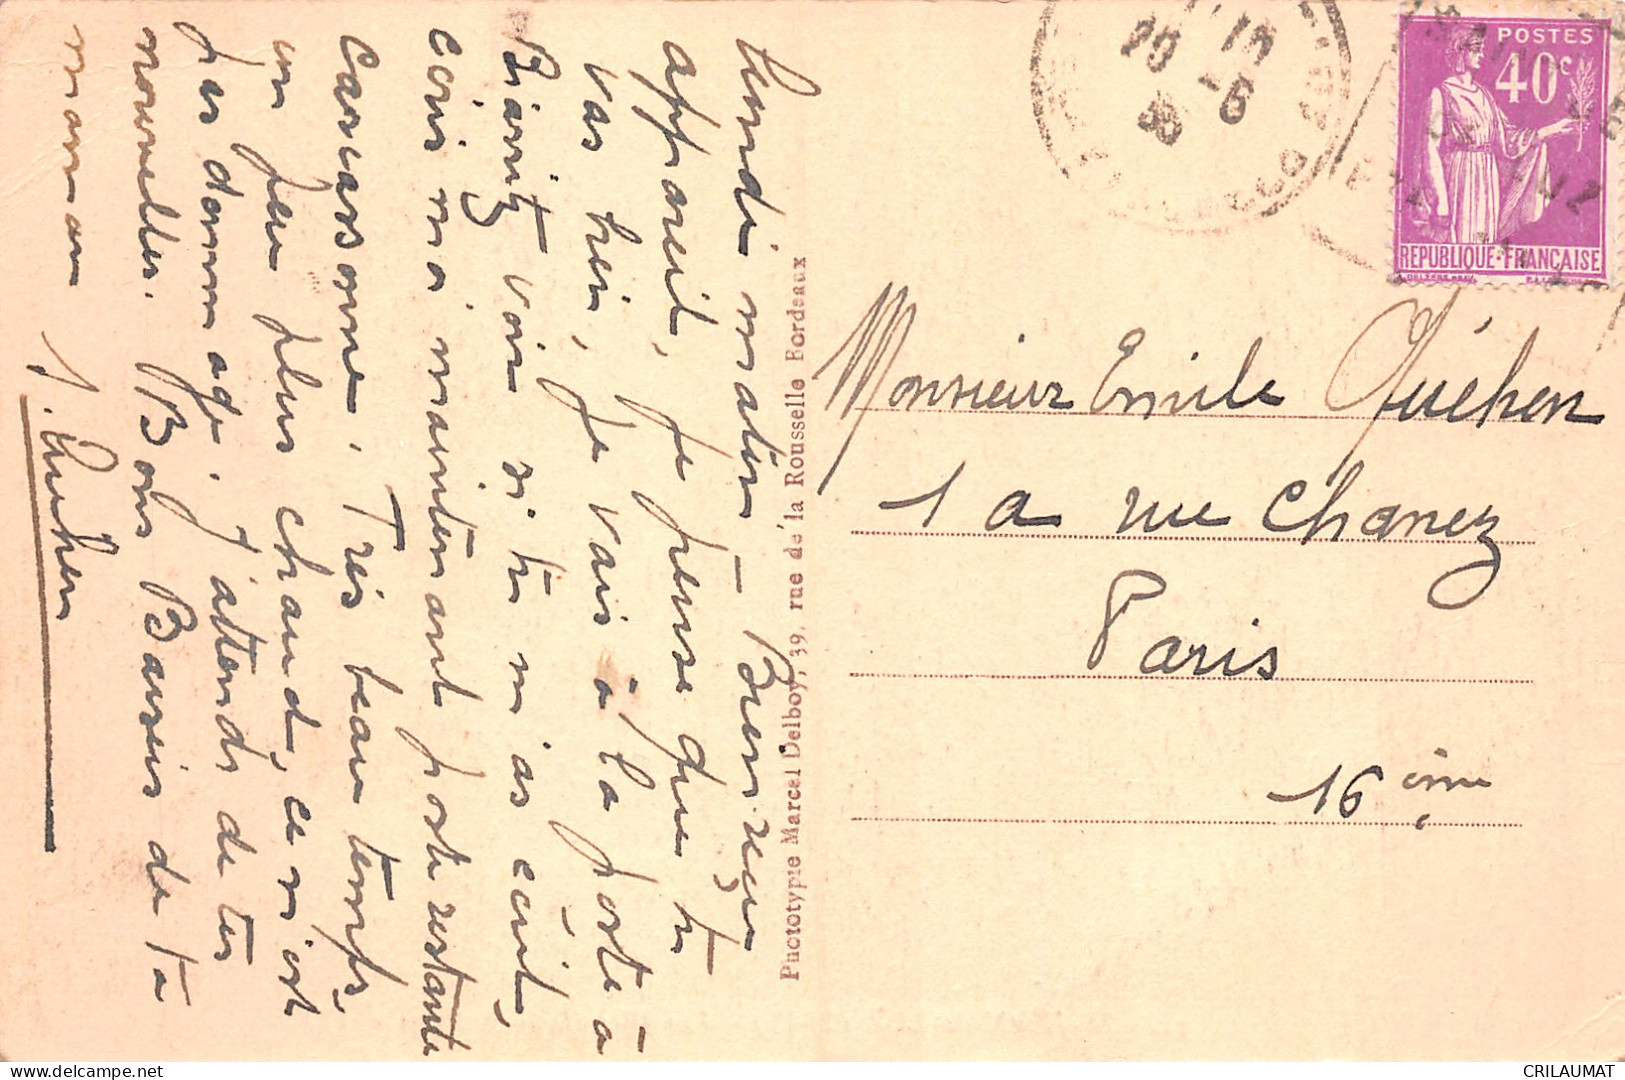 Lundi matin – Bien reçu
appareil, je pense que tu
vas bien, je vais à la poste à
Biarritz voir si tu m'as écrit,
écris moi maintenant poste restante
Carcassonne. Très beau temps,
un peu plus chaud, ce n'est
pas dommage. J'attends de tes
nouvelles. Bons Baisers de ta
maman J. Quéhen
Phototypie Marcel Delboy, 39, rue de la Rousselle Bordeaux
POSTES
40c
REPUBLIQUE FRANÇAISE
Monsieur Emile Quéhen
1 a rue Chanez
Paris
16 ème
CRILAUMAT